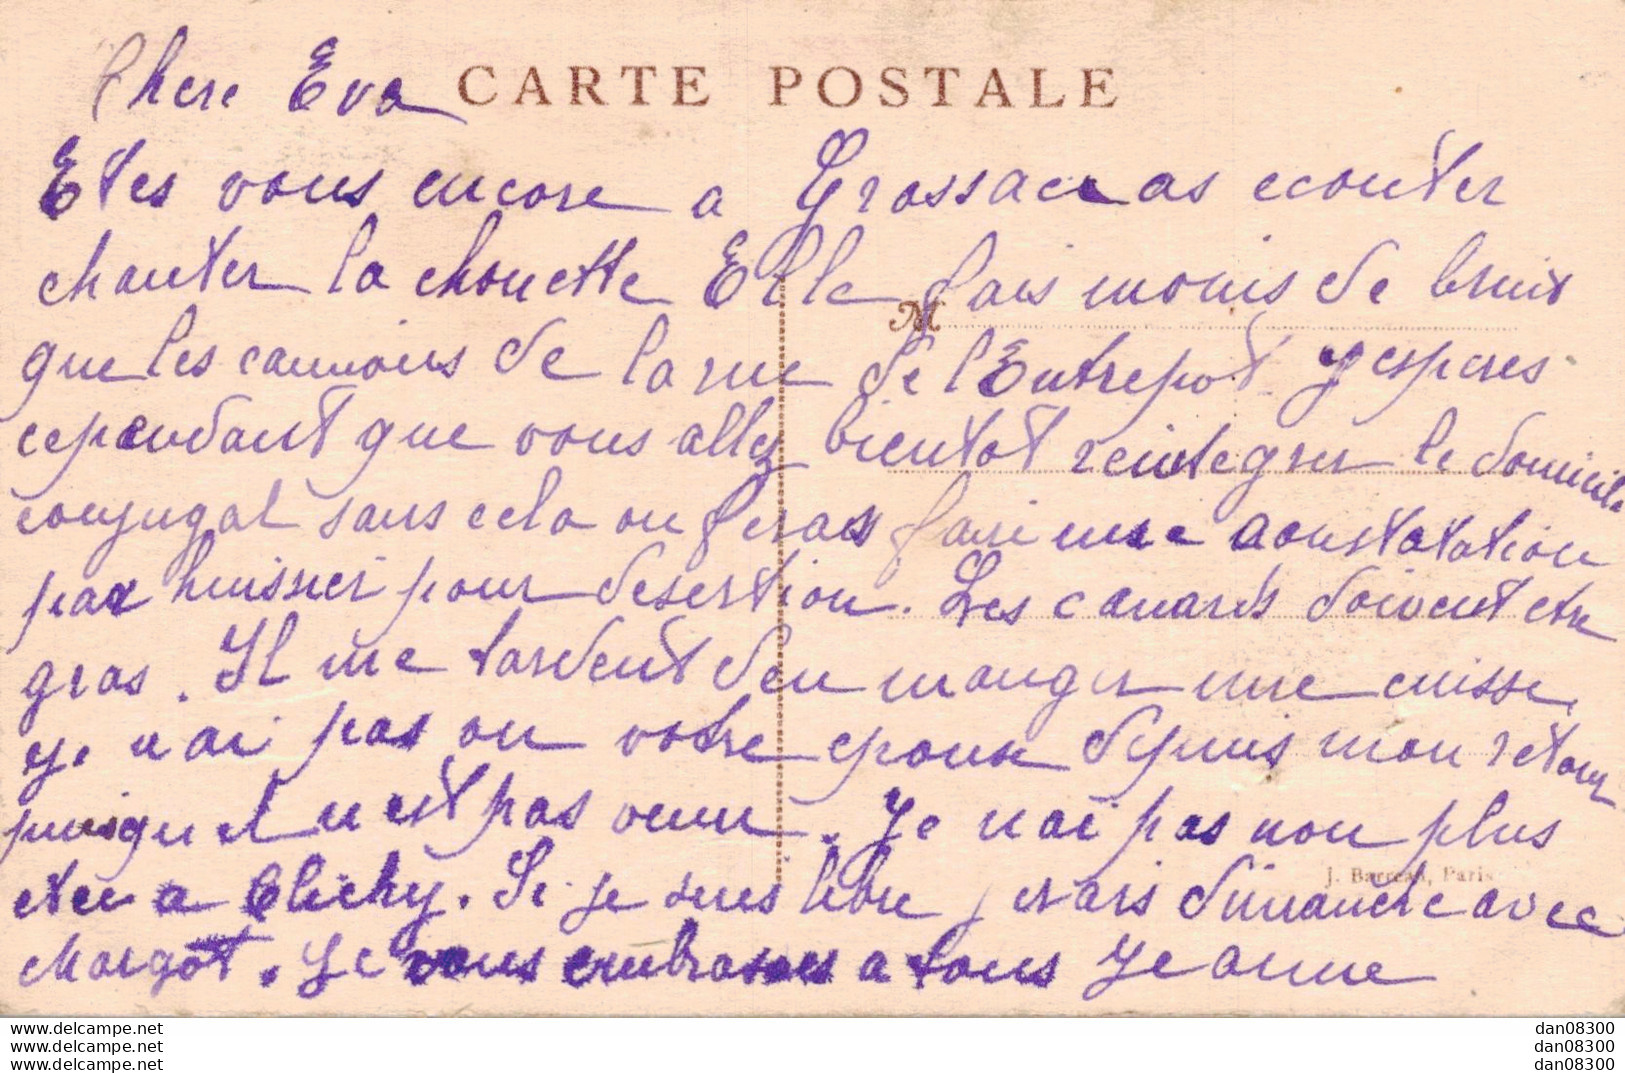 Chere Eva
CARTE POSTALE
Etes vous encore a Grossac as ecouter
chanter la chouette Elle fais moins de bruit
M
que les camions de la rue de l'Entrepot J esperes
cependant que vous allez bientot reintegrer le domicile
conjugal sans cela on feras faire une constatation
par huissier pour desertion. Les canards doivent etre
gras. Il me tardent d'en manger une cuisse.
Je n ai pas vu votre epoux depuis mon retour
puisqu il n est pas venu. Je n ai pas non plus
J. Barreau, Paris
etee a Clichy. Si je suis libre j irais dimanche avec
Margot. Je vous embrasses a tous Jeanne
www.delcampe.net
www.delcampe.net
www.delcampe.net
dan08300
dan08300
dan08300